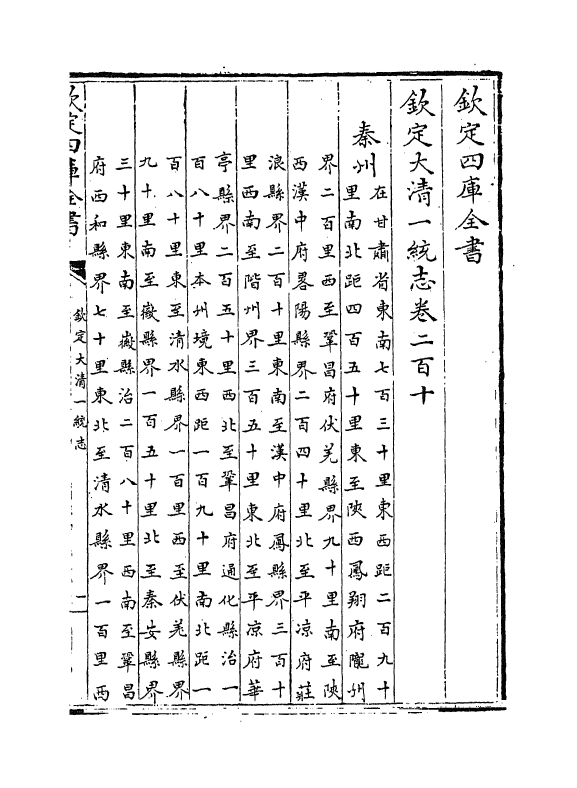 欽定四庫全書
欽定大清一統志卷二百十
秦州
在甘肅省東南七百三十里東西距二百九十
里南北距四百五十里東至陜西鳳翔府隴州
界二百里西至鞏昌府伏羌縣界九十里南至陜
西漢中府畧陽縣界二百四十里北至平凉府莊
浪縣界二百十里東南至漢中府鳳縣界三百十
里西南至階州界三百五十里東北至平凉府華
亭縣界二百五十里西北至鞏昌府通化縣治一
百八十里本州境東西距一百九十里南北距一
百八十里東至清水縣界一百里西至伏羌縣界
九十里南至徽縣界一百五十里北至秦安縣界
三十里東南至徽縣治二百八十里西南至鞏昌
府西和縣界七十里東北至清水縣界一百里西
欽定四庫全書
欽定大清一統志
一